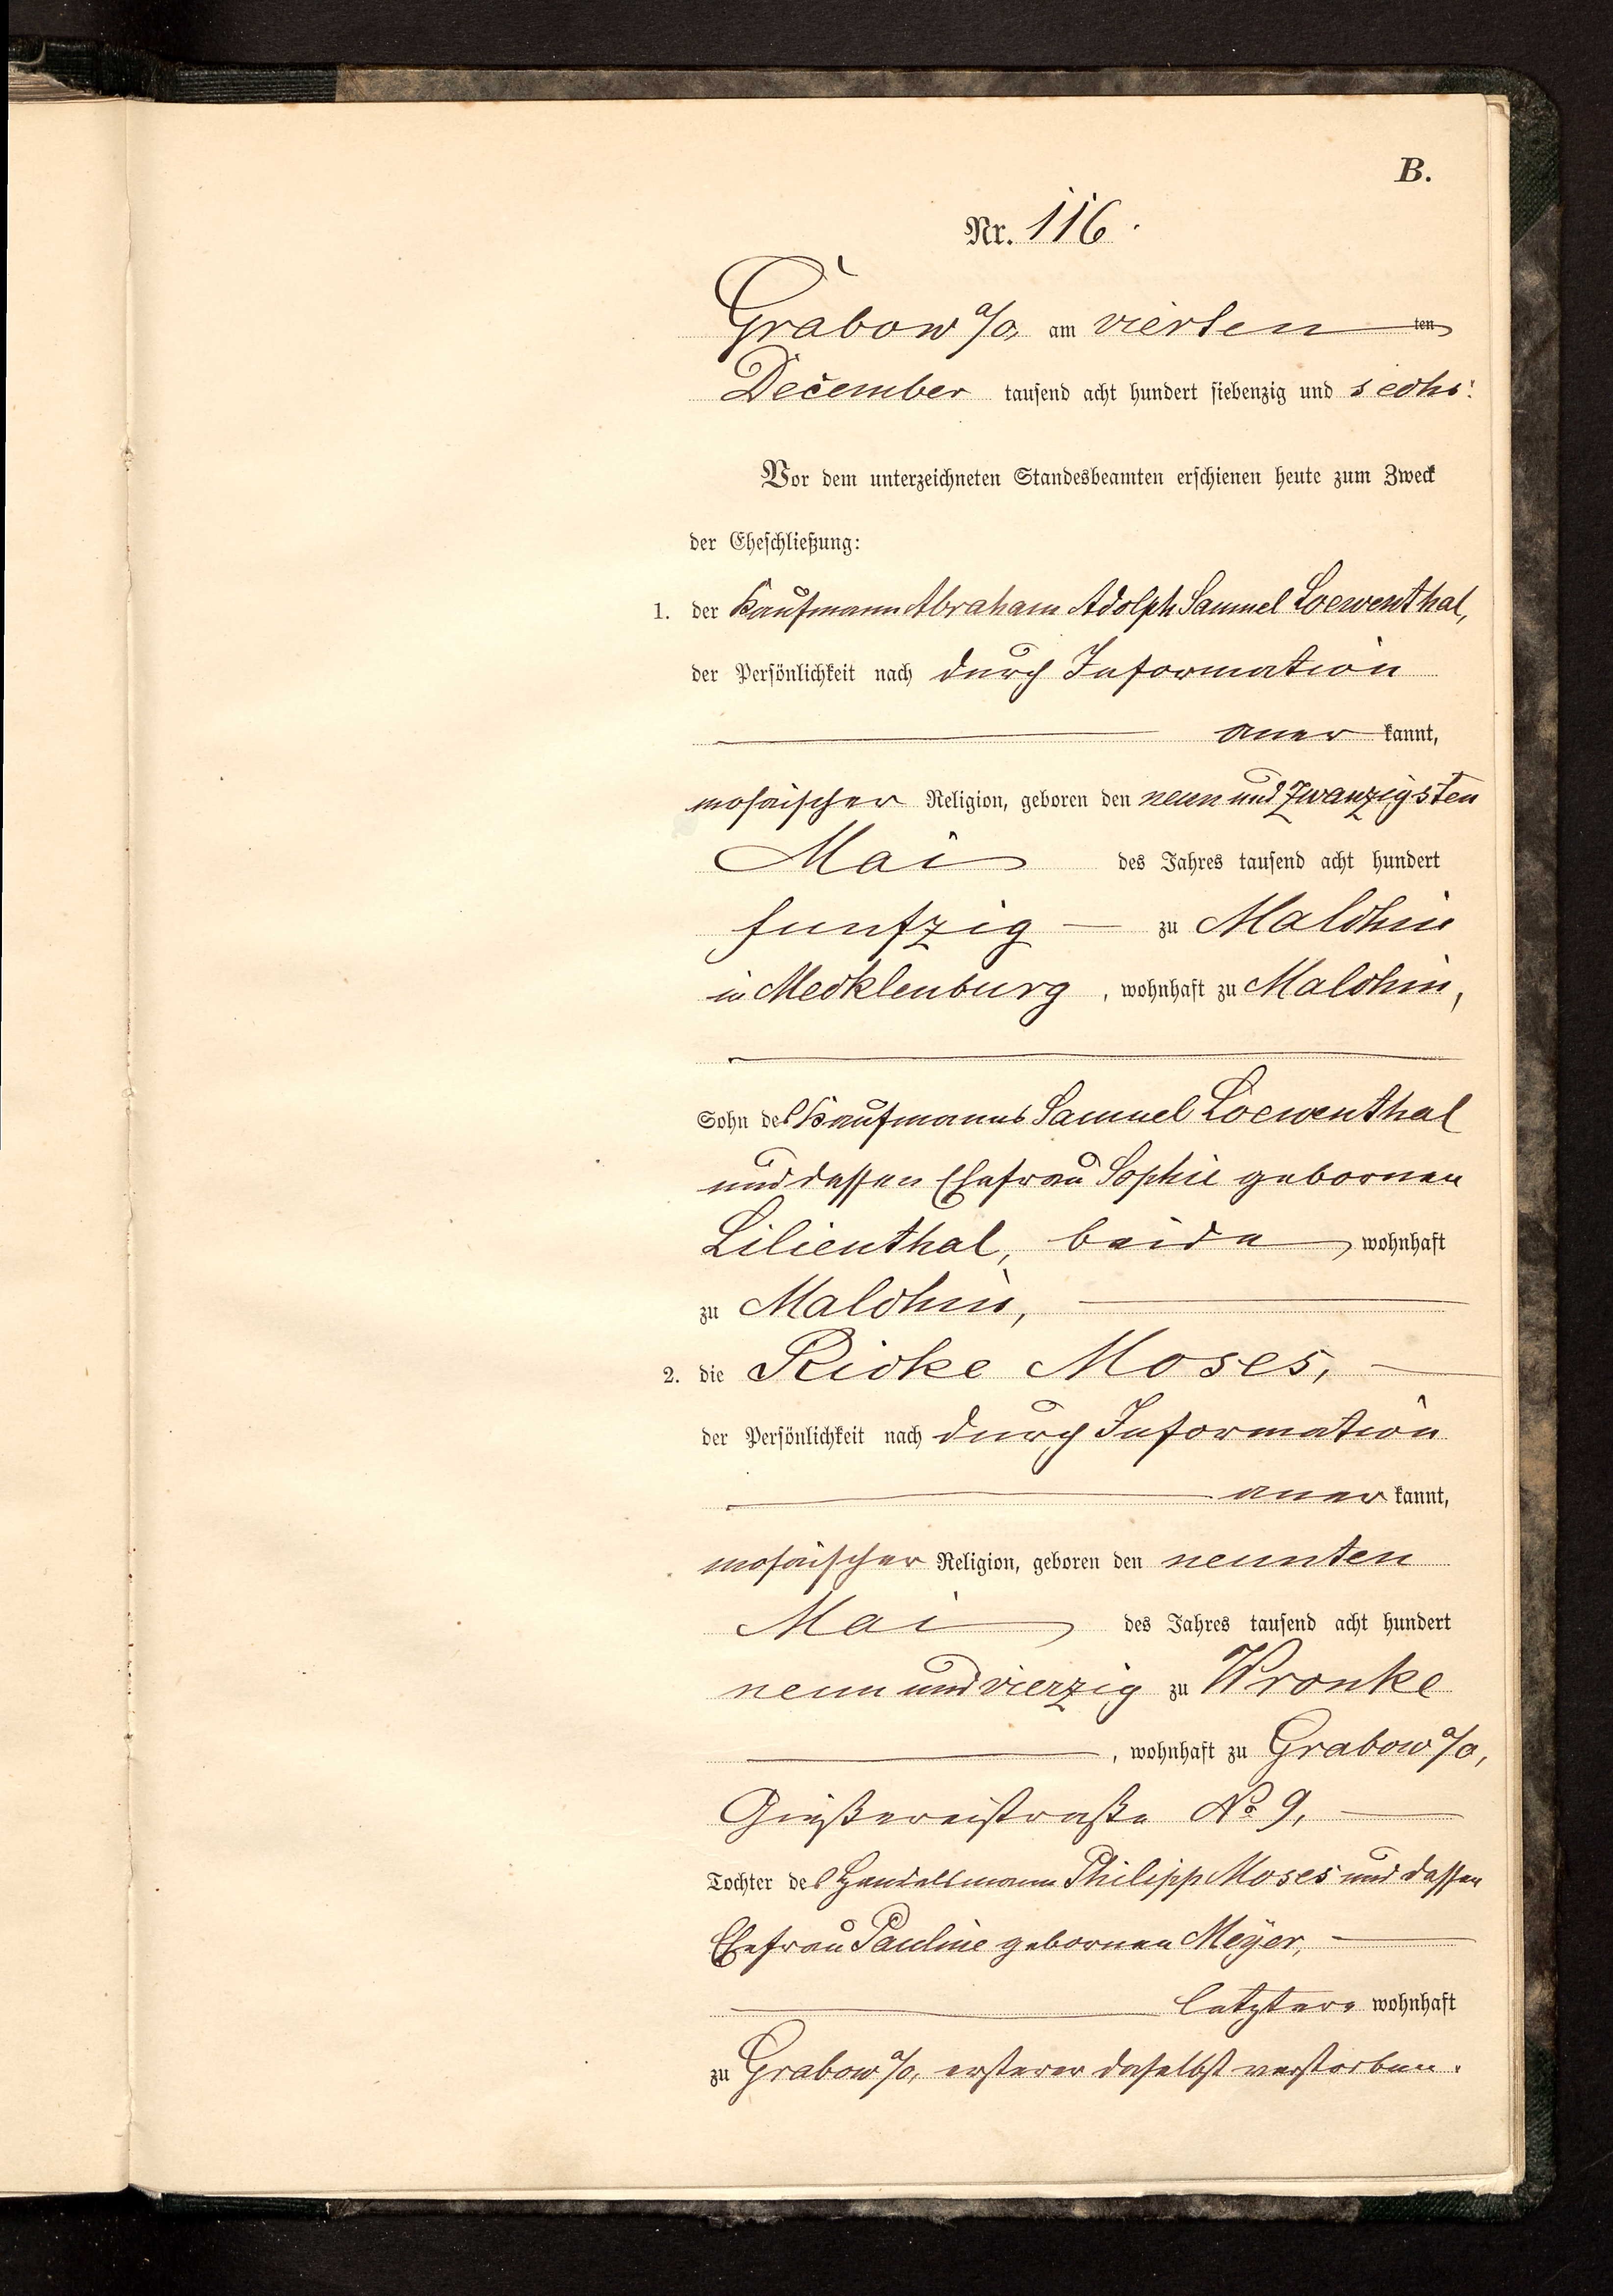 B.
Nr. 116.
Grabow a/O, am vierten ten
December tausend acht hundert siebenzig und sechs:
Vor dem unterzeichneten Standesbeamten erschienen heute zum Zweck
der Eheschließung:
1. der Kaufmann Abraham Adolph Samuel Loewenthal,
der Persönlichkeit nach durch Information
aner kannt,
mosaischer Religion, geboren den neun und zwanzigsten
Mai des Jahres tausend acht hundert
funfzig zu Malchin
in Mecklenburg, wohnhaft zu Malchin,
Sohn des Kaufmanns Samuel Loewenthal
und dessen Ehefrau Sophie gebornen
Lilienthal, beide wohnhaft
zu Malchin,
2. die Ricke Moses,
der Persönlichkeit nach durch Information
aner kannt,
mosaischer Religion, geboren den neunten
Mai des Jahres tausend acht hundert
neun und vierzig zu Wronke
, wohnhaft zu Grabow a/O,
Gießereistraße No 9,
Tochter des Handelsmann Philipp Moses und dessen
Ehefrau Pauline gebornen Meyer,
letztere wohnhaft
zu Grabow a/O, ersterer daselbst verstorben.